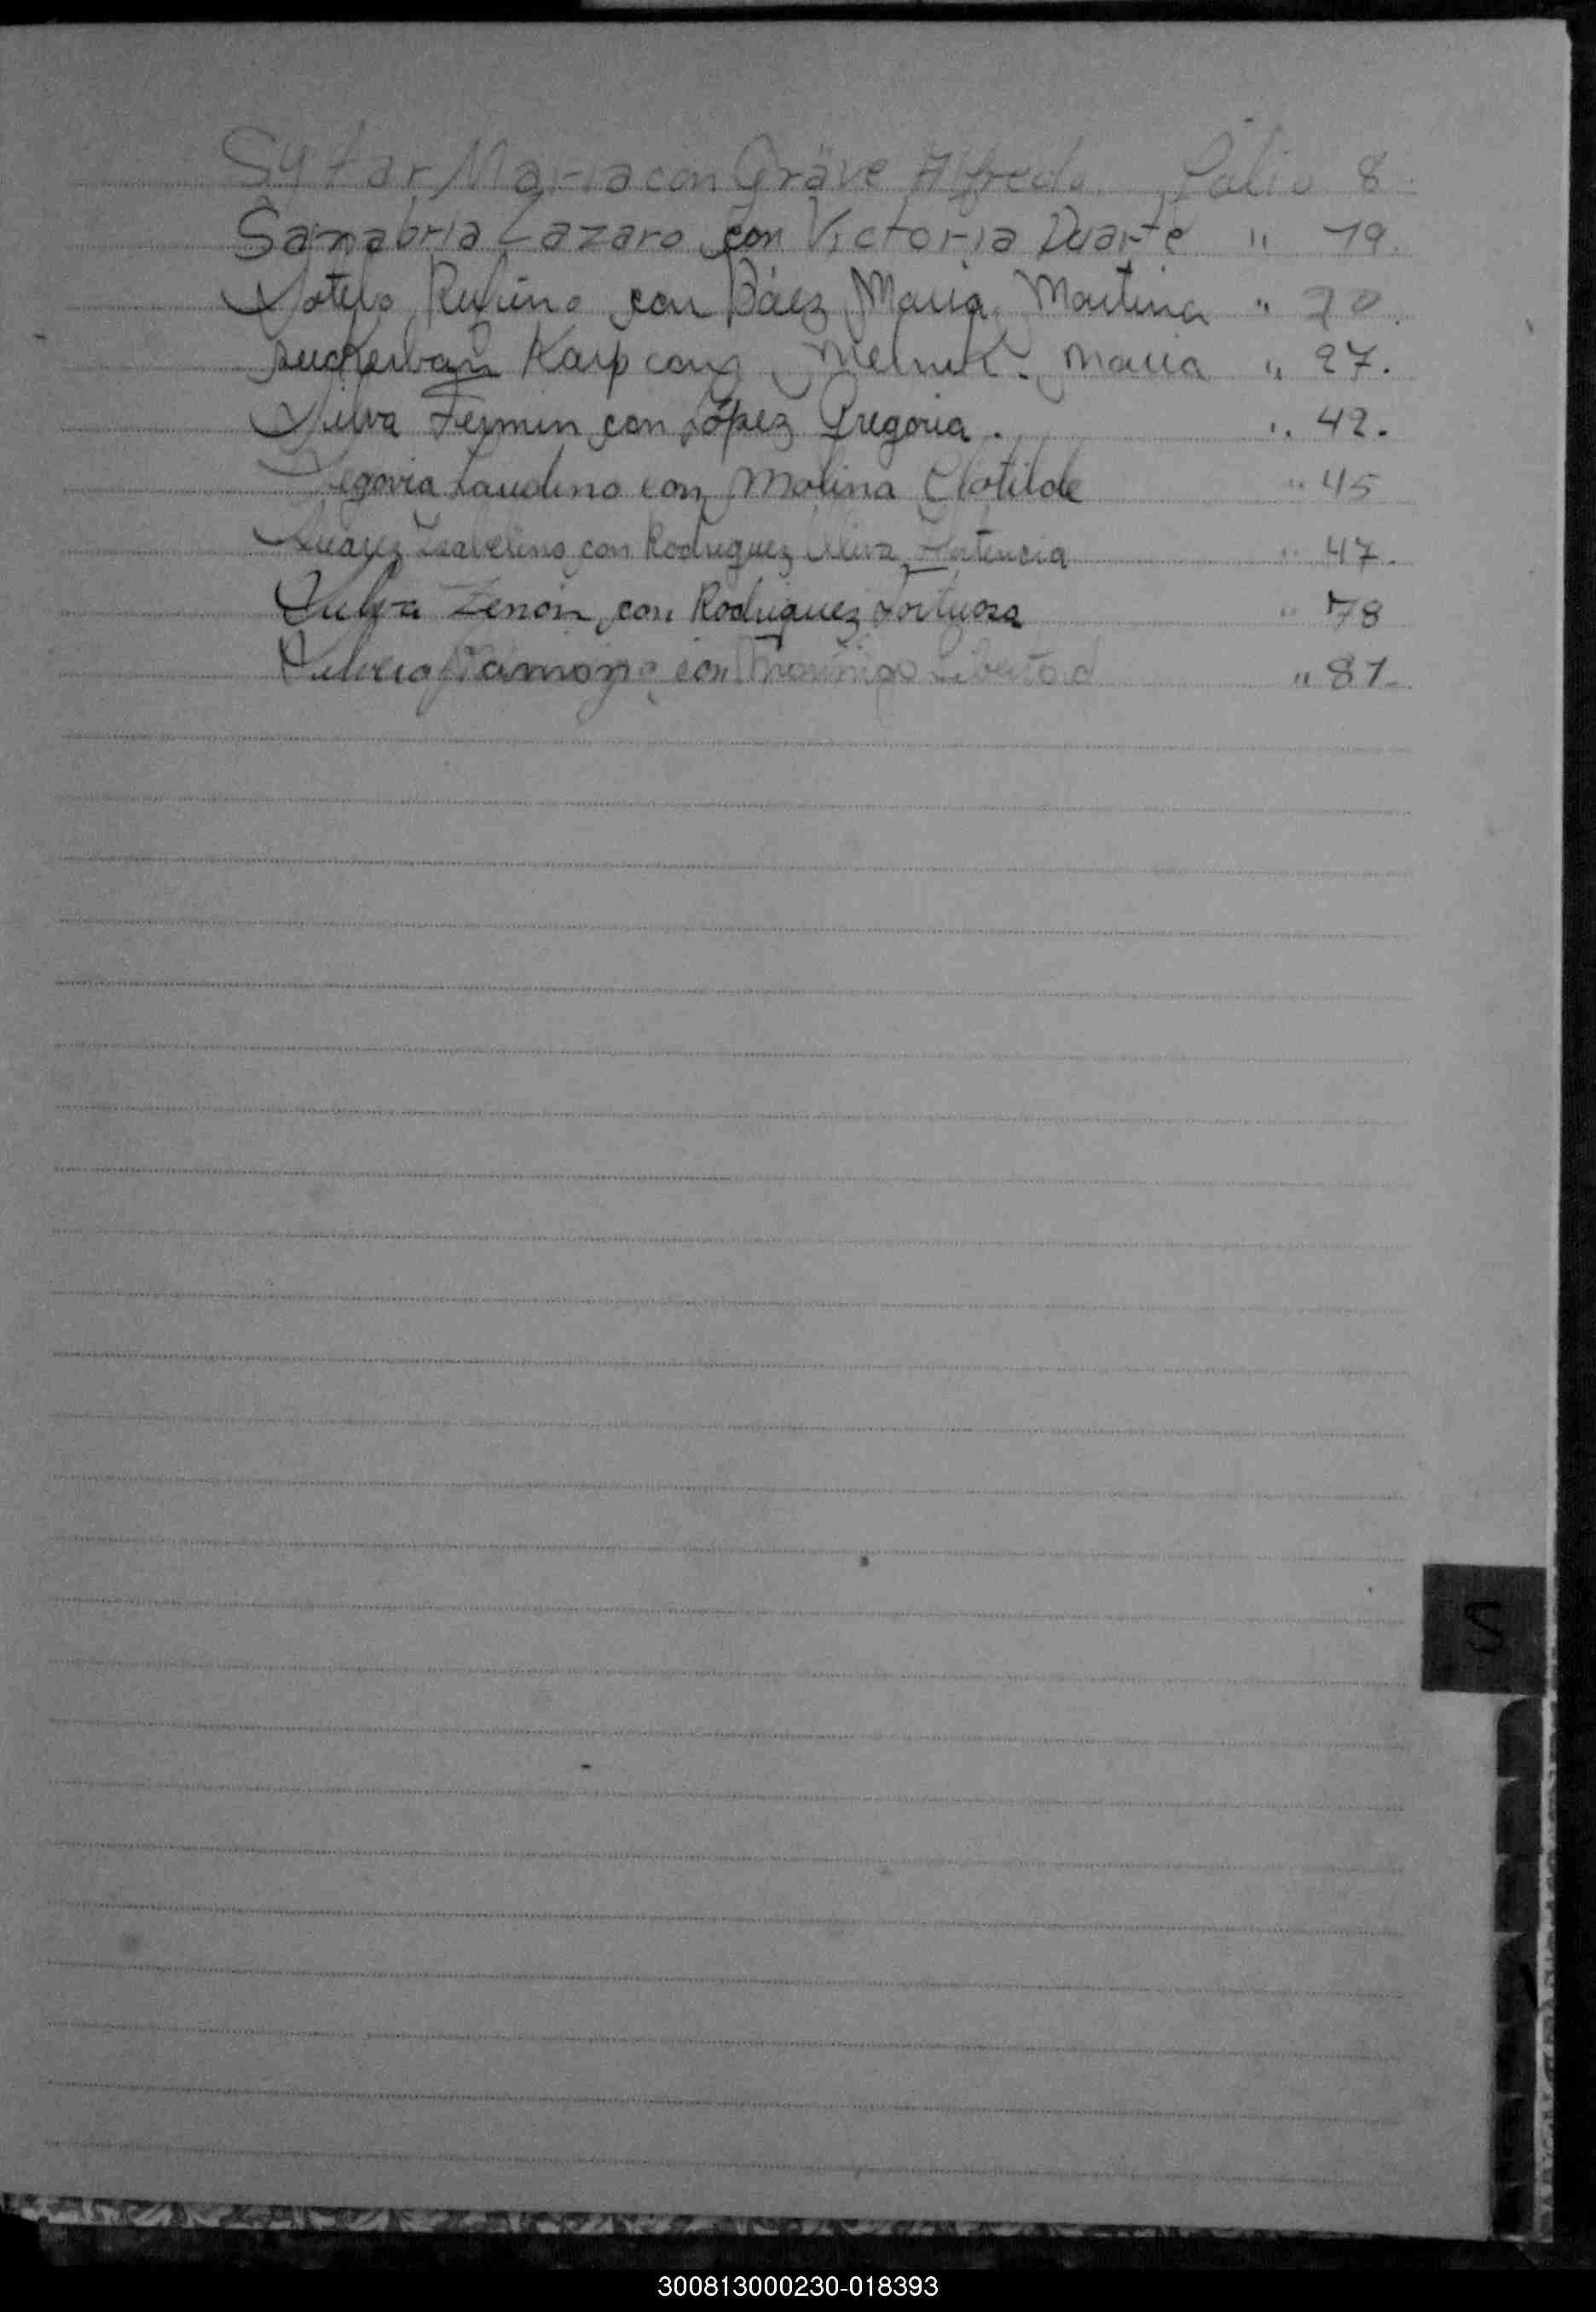 Sytar Maria con Gräve Alfredo Folio 8.
Sanabria Lazaro con Victoria Duarte " 19.
Sotelo Rufino con Báez Maria Martina " 20.
Karp con Melnik. Maria " 27.
Silva Fermin con López Gregoria. " 42.
Segovia Laudino con Molina Clotilde " 45
Suarez Isabelino con Rodriguez Hortencia " 47.
Zenón con Rodriguez Fortuosa " 78
Ramona con Libertad " 81.
S
300813000230-018393